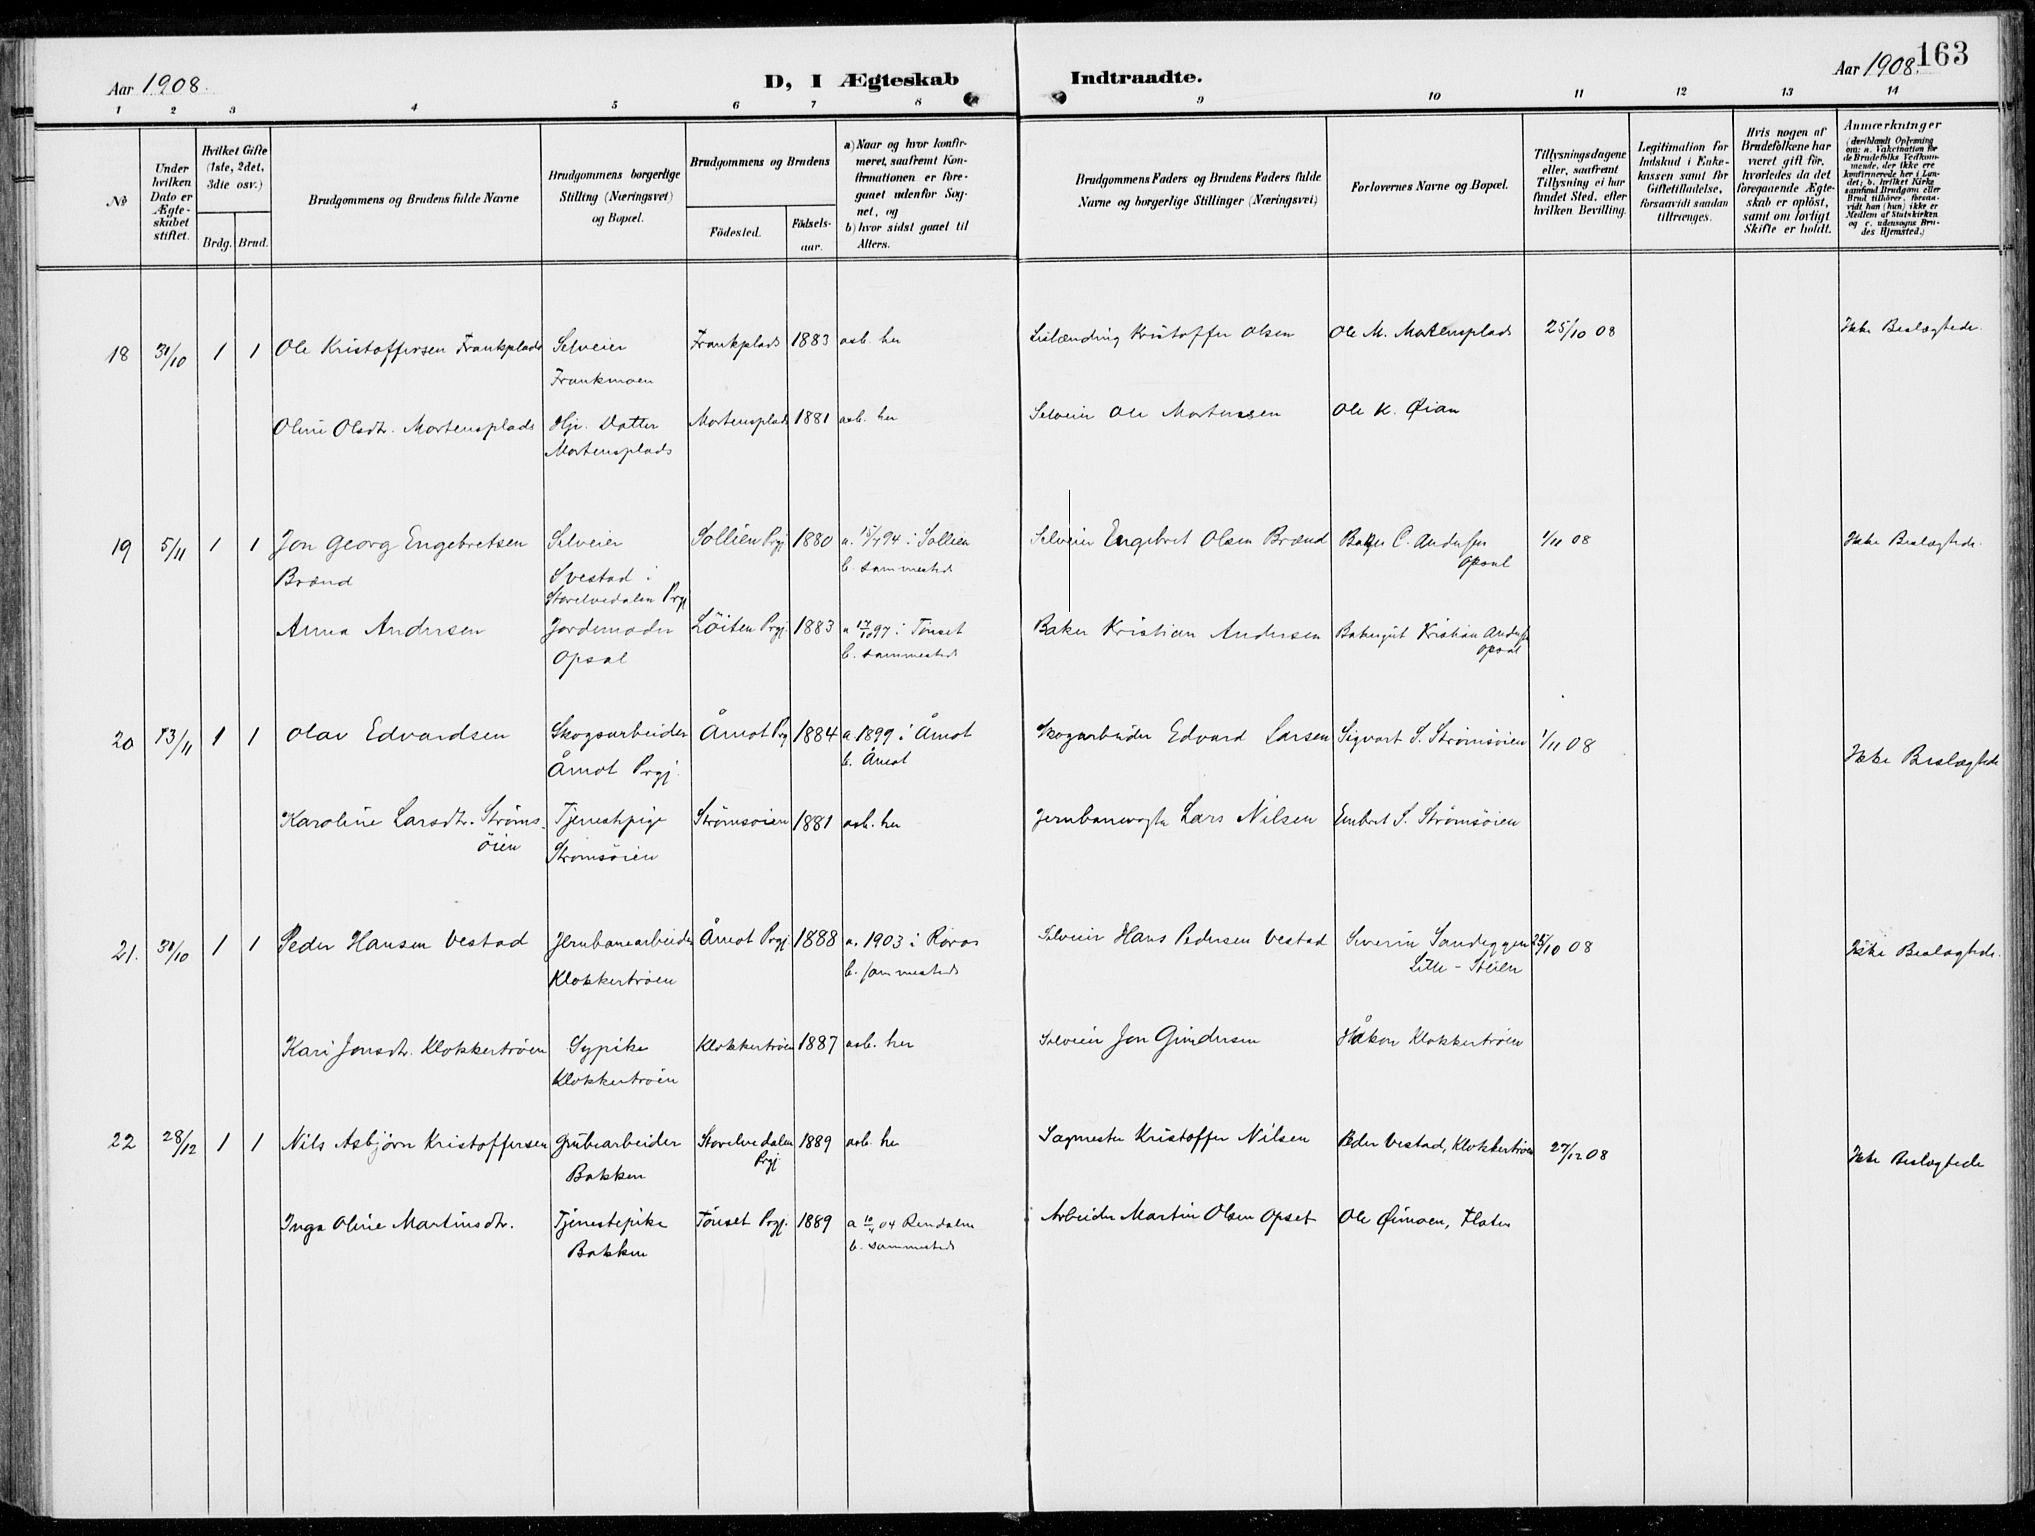 163
Aar 1908.
D, I Ægteskab Indtraadte.
Aar 1908.
1 2 3 4 5 6 7 8 9 10 11 12 13 14
No
Under hvilken Dato er Ægteskabet stiftet.
Hvilket Gifte (1ste, 2det, 3die osv.)
Brdg. Brud.
Brudgommens og Brudens fulde Navne
Brudgommens borgerlige Stilling (Næringsvei) og Bopæl.
Brudgommens og Brudens
Födested.
Födselsaar.
a) Naar og hvor konfirmeret, saafremt Konfirmationen er foregaaet udenfor Sognet, og
b) hvor sidst gaaet til Alters.
Brudgommens Faders og Brudens Faders fulde Navne og borgerlige Stillinger (Næringsvei)
Forlovernes Navne og Bopæl.
Tillysningsdagene eller, saafremt Tillysning ei har fundet Sted, efter hvilken Bevilling.
Legitimation for Indskud i Enkekassen samt for Giftetilladelse, forsaavidt saadan tiltrænges.
Hvis nogen af Brudefolkene har været gift för, hvorledes da det foregaaende Ægteskab er oplöst, samt om lovligt Skifte er holdt.
Anmærkninger
(deriblandt Oplysning om: a. Vakcination for de Brudefolks Vedkommende, der ikke ere konfirmerede her i Landet; b. hvilket Kirkesamfund Brudgom eller Brud tilhörer, forsaavidt han (hun) ikke er Medlem af Statskirken og c. udensogns Brudes Hjemsted.)
18 31/10 1 1 Ole Kristoffersen Frankplads Selveier Frankplads 1883 asb. her Kristoffer Olsen Ole M. Mortensplads 25/10 08 Ikke Beslægtede.
Frankmoen
Oline Olsdtr. Mortensplads Hjv. Datter Mortensplads 1881 asb. her Selveier Ole Mortensen Ole K. Øian
Mortensplads
19 5/11 1 1 Jon Georg Engebretsen Selveier Sollien Prgj 1880 a. 15/7 94 i Sollien Selveier Engebret Olsen Brænd Baker C. Andersen 1/11 08 Ikke Beslægtede.
Brænd Svestad i b. sammesteds Opsal
Storelvedalen Prgj
Anna Andersen Jordemoder Löiten Prgj. 1883 a 17/10 97 i Tönset Baker Kristian Andersen Bakergut Kristian Andersen
Opsal b. sammesteds Opsal
20 13/11 1 1 Olav Edvardsen Skogsarbeider Åmot Prg 1884 a. 1899 i Åmot Skogarbeider Edvard Larsen Sigvart S. Strömsöien 1/11 08
Åmot Prgj. b. Åmot Ikke Beslægtede
Karoline Larsdtr. Ströms- Tjenestpige Strömsöien 1881 asb. her Jernbanevogter Lars Nilsen Embret S. Strömsöien
öien Strömsöien
21. 31/10 1 1 Peder Hansen Vestad Jernbanearbeider Åmot Prgj 1888 a. 1903 i Röros Selveier Hans Pedersen Vestad Severin Sandeggen 25/10 08 Ikke Beslægtede.
Klokkertröen b. sammesteds Lille-Steien
Kari Jonsdtr. Klokkertröen Sypike Klokkertröen 1887 asb. her Selveier Jon Gundersen Håkon Klokkertröen
Klokkertröen
22 28/12 1 1 Nils Asbjörn Kristoffersen Grubearbeider Storelvedalen 1889 asb. her Sagmester Kristoffer Nilsen Peder Vestad, Klokkertröen 27/12 08 Ikke Beslægtede
Bakken Prgj
Inga Oline Martinsdtr. Tjenestepike Tönset Prgj. 1889 a 04 Rendalen Arbeider Martin Olsen Opset Ole Öimoen, Flaten
Bakken b. sammesteds